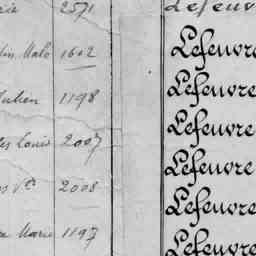 2571 Lefeuv
Malo 1602 Lefeuvre
Julien 1198 Lefeuvre
Louis 2007 Lefeuvre
2008 Lefeuvre
Marie 1197 Lefeuvre
Lefeuvre